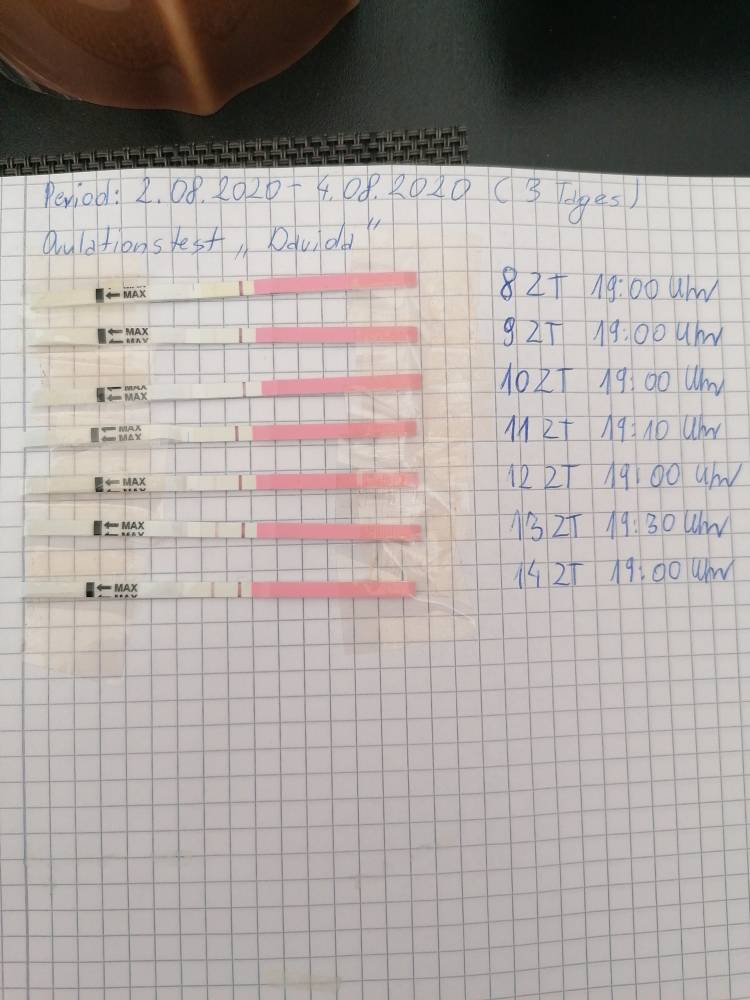 Period: 2.08.2020 - 4.08.2020 ( 3 Tages)
Ovulationstest „ Davida"
← MAX 8 ZT 19:00 Uhr
← MAX 9 ZT 19:00 Uhr
← MAX
← MAX 10 ZT 19:00 Uhr
← MAX
← MAX 11 ZT 19:10 Uhr
← MAX
← MAX 12 ZT 19:00 Uhr
← MAX 13 ZT 19:30 Uhr
← MAX 14 ZT 19:00 Uhr